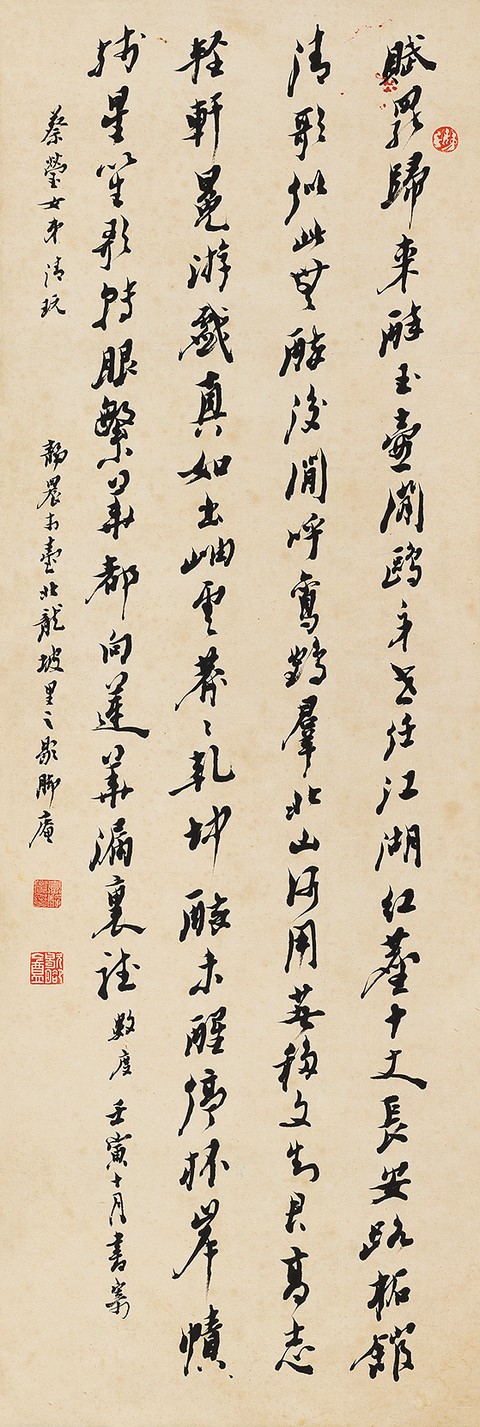 賦罷歸來醉玉壺閒鷗身世任江湖紅塵十丈長安路柘館
清歌似此無醉後閒呼鸞鶴羣北山何用移文知君高志
輕軒冕游戲真如出岫雲莽莽乾坤醉未醒停杯岸幘
殘星笙歌轉眼繁華都向蓮華漏裏聽 數度 壬寅十月書寄
蔡瑩女弟清玩 靜農於臺北龍坡里之歇腳庵